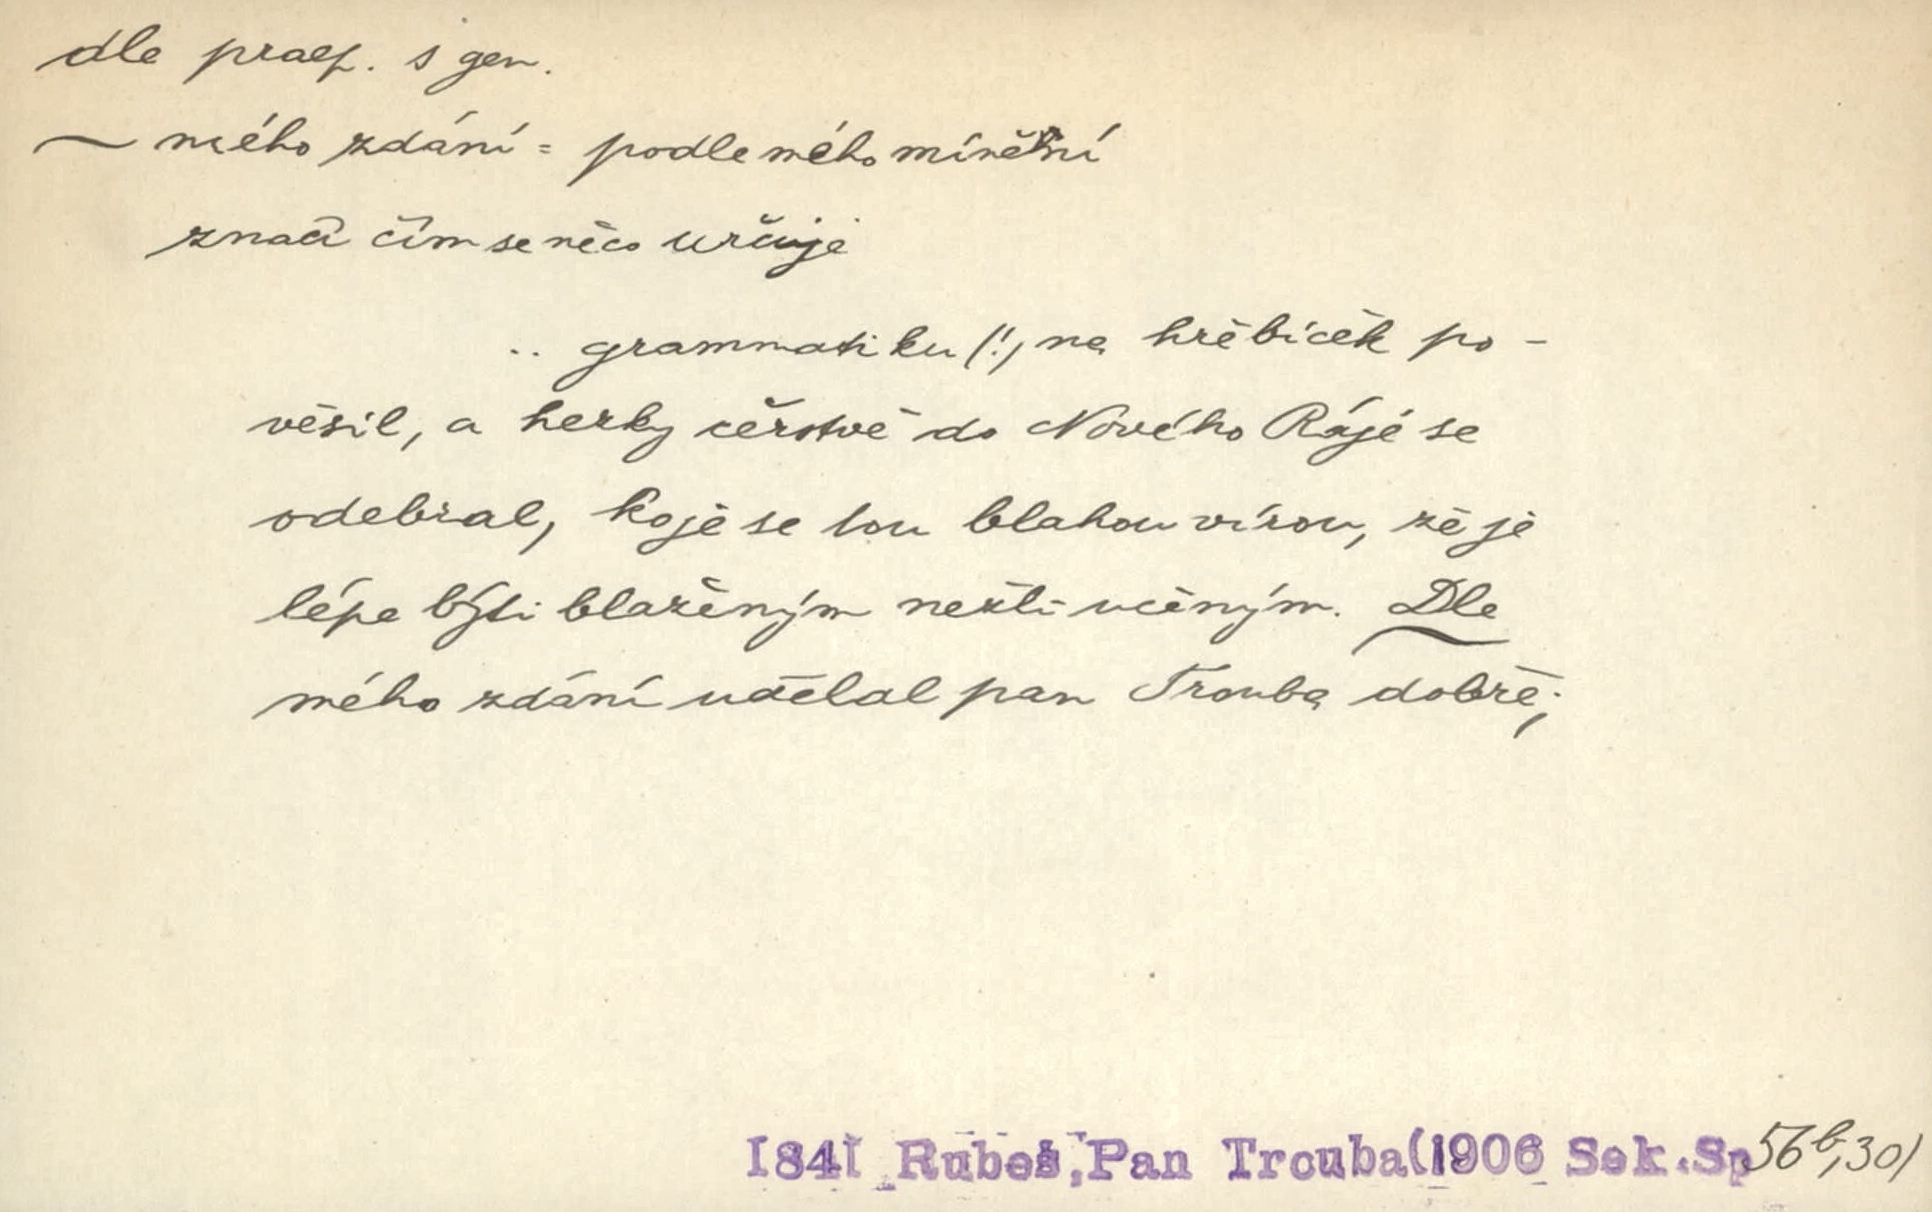 dle praep. s gen.
~ mého zdání = podle mého mínění
značí čím se něco určuje
.. grammatiku (!) na hřebíček po-
věsil, a hezky čerstvě do Nového Ráje se
odebral, koje se tou blahou vírou, že je
lépe býti blaženým nežli učeným. Dle
mého zdání udělal pan Trouba dobře;
1841 Rubeš, Pan Trouba (1906 Sek.Sp 56b,30)